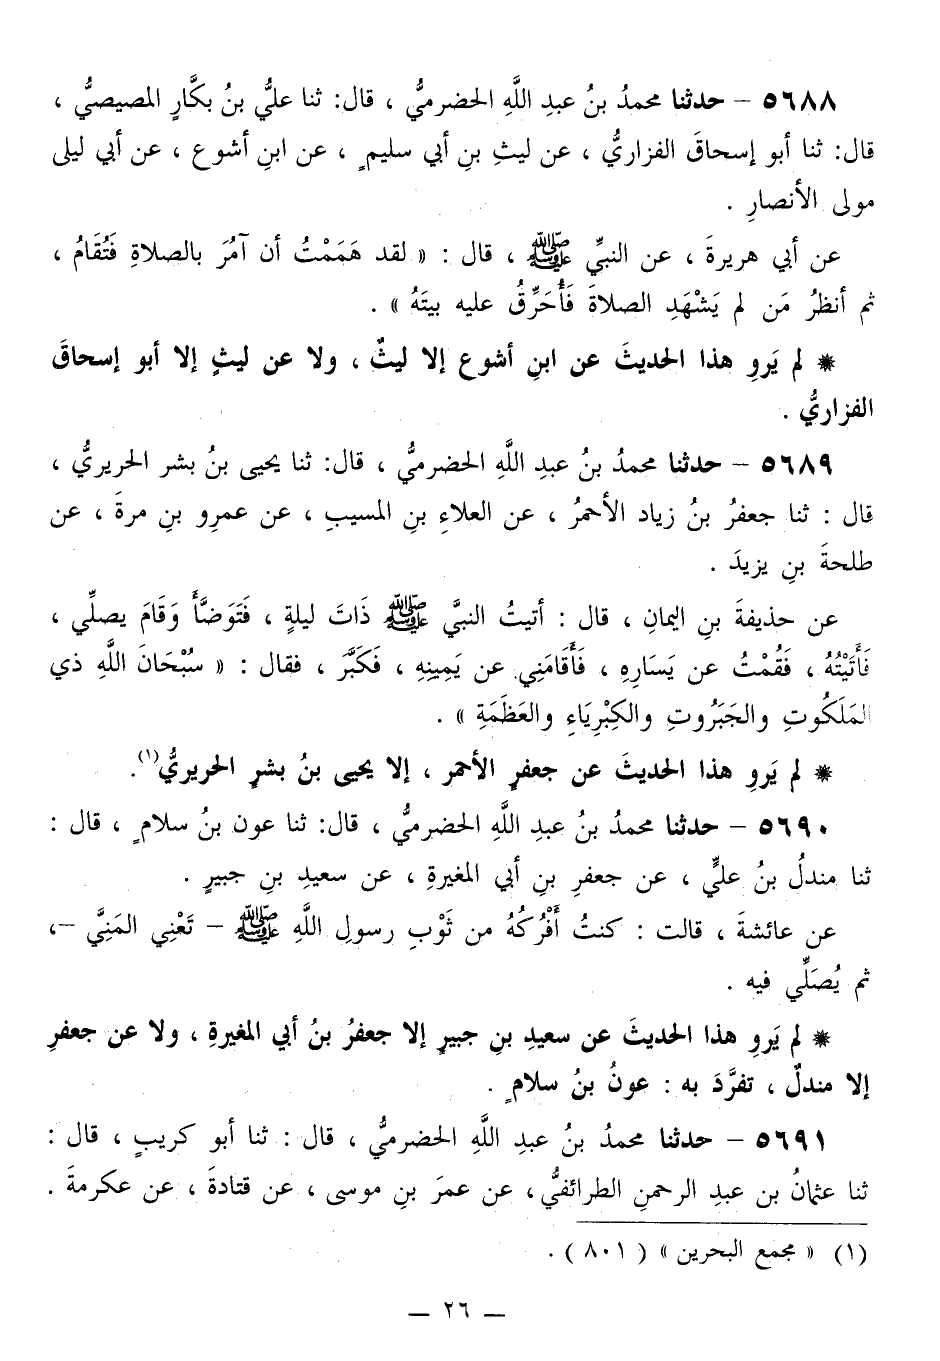 ٥٦٨٨ – حدثنا محمدُ بنُ عبدِ اللَّهِ الحضرميُّ ، قال: ثنا عليُّ بنُ بكَّارٍ المصيصيُّ ،
قال: ثنا أبو إسحاقَ الفزاريُّ ، عن ليثِ بنِ أبي سليمٍ ، عن ابنِ أشوع ، عن أبي ليلى
مولى الأنصارِ .
عن أبي هريرةَ ، عن النبيِّ ﷺ ، قال : « لقد هَمَمْتُ أن آمُرَ بالصلاةِ فَتُقَامُ ،
ثم أنظرُ مَن لم يَشْهَدِ الصلاةَ فَأُحَرِّقُ عليه بيتَهُ » .
* لم يَروِ هذا الحديثَ عن ابنِ أشوع إلا ليثٌ ، ولا عن ليثٍ إلا أبو إسحاقَ
الفزاريُّ .
٥٦٨٩ – حدثنا محمدُ بنُ عبدِ اللَّهِ الحضرميُّ ، قال: ثنا يحيى بنُ بشر الحريريُّ ،
قال : ثنا جعفرُ بنُ زياد الأحمرُ ، عن العلاءِ بنِ المسيبِ ، عن عمرِو بنِ مرةَ ، عن
طلحةَ بنِ يزيدَ .
عن حذيفةَ بنِ اليمانِ ، قال : أتيتُ النبيَّ ﷺ ذَاتَ ليلةٍ ، فَتَوَضَّأَ وَقَامَ يصلِّي ،
فَأَتَيْتُهُ ، فَقُمْتُ عن يَسَارِهِ ، فَأَقَامَنِي عن يَمِينِهِ ، فَكَبَّرَ ، فقال : « سُبْحَانَ اللَّهِ ذي
المَلَكُوتِ والجَبَرُوتِ والكِبْرِيَاءِ والعَظَمَةِ » .
* لم يَروِ هذا الحديثَ عن جعفرٍ الأحمرِ ، إلا يحيى بنُ بشرٍ الحريريُّ(١).
٥٦٩٠ – حدثنا محمدُ بنُ عبدِ اللَّهِ الحضرميُّ ، قال: ثنا عون بنُ سلامٍ ، قال :
ثنا مندلُ بنُ عليٍّ ، عن جعفرِ بنِ أبي المغيرةِ ، عن سعيدِ بنِ جبيرٍ .
عن عائشةَ ، قالت : كنتُ أَفْرُكُهُ من ثَوْبِ رسولِ اللَّهِ ﷺ – تَعْنِي المَنِيَّ –،
ثم يُصَلِّي فيه .
* لم يَروِ هذا الحديثَ عن سعيدِ بنِ جبيرٍ إلا جعفرُ بنُ أبي المغيرةِ ، ولا عن جعفرٍ
إلا مندلٌ ، تفرَّدَ به : عونُ بنُ سلامٍ .
٥٦٩١ – حدثنا محمدُ بنُ عبدِ اللَّهِ الحضرميُّ ، قال : ثنا أبو كريبٍ ، قال :
ثنا عثمانُ بن عبدِ الرحمنِ الطرائفيُّ، عن عمرَ بنِ موسى ، عن قتادةَ ، عن عكرمةَ .
(١) « مجمع البحرين » ( ٨٠١ ) .
– ٢٦ –